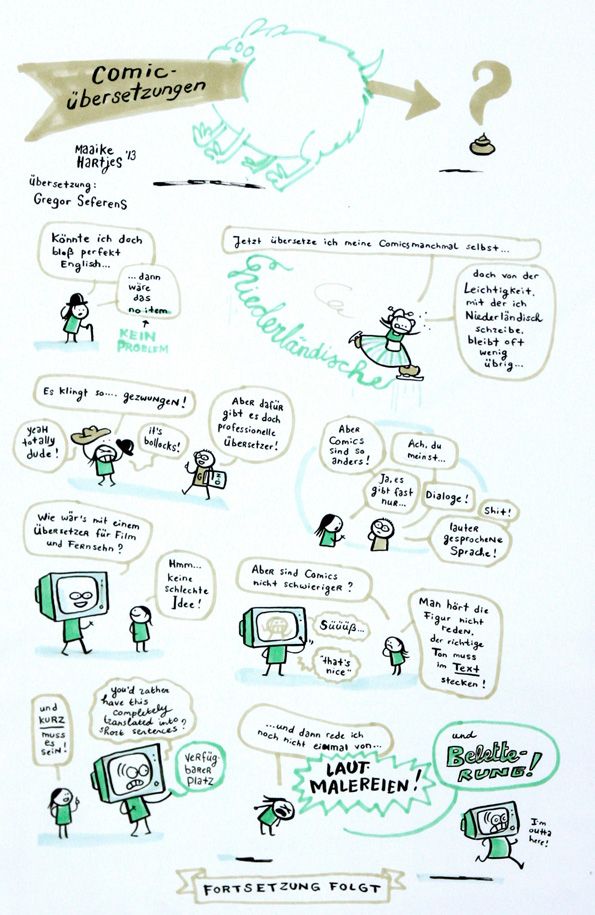 Comic-
übersetzungen
?
Maaike
Hartjes '13
übersetzung:
Gregor Seferens
Könnte ich doch
bloß perfekt
Englisch...
... dann
wäre
das
no item
KEIN
PROBLEM
Jetzt übersetze ich meine Comicsmanchmal selbst...
Niederländische
doch von der
Leichtigkeit,
mit der ich
Niederländisch
schreibe,
bleibt oft
wenig
übrig...
Es klingt so.... gezwungen!
yeah
totally
dude!
it's
bollocks!
Aber dafür
gibt es doch
professionelle
Übersetzer!
Aber
Comics
sind so
anders!
Ach, du
meinst...
Ja, es
gibt fast
nur...
Dialoge!
Shit!
lauter
gesprochene
Sprache!
Wie wär's mit einem
Übersetzer für Film
und Fernsehn?
Hmm...
keine
schlechte
Idee!
Aber sind Comics
nicht schwieriger?
Süüüß...
"that's
nice"
Man hört die
Figur nicht
reden,
der richtige
Ton muss
im Text
stecken!
und
KURZ
muss
es
sein!
you'd rather
have this
completely
translated into
short sentences?
Verfüg-
barer
Platz
...und dann rede ich
noch nicht einmal von...
LAUT-
MALEREIEN!
und
Belette-
rung!
I'm
outta
here!
FORTSETZUNG FOLGT